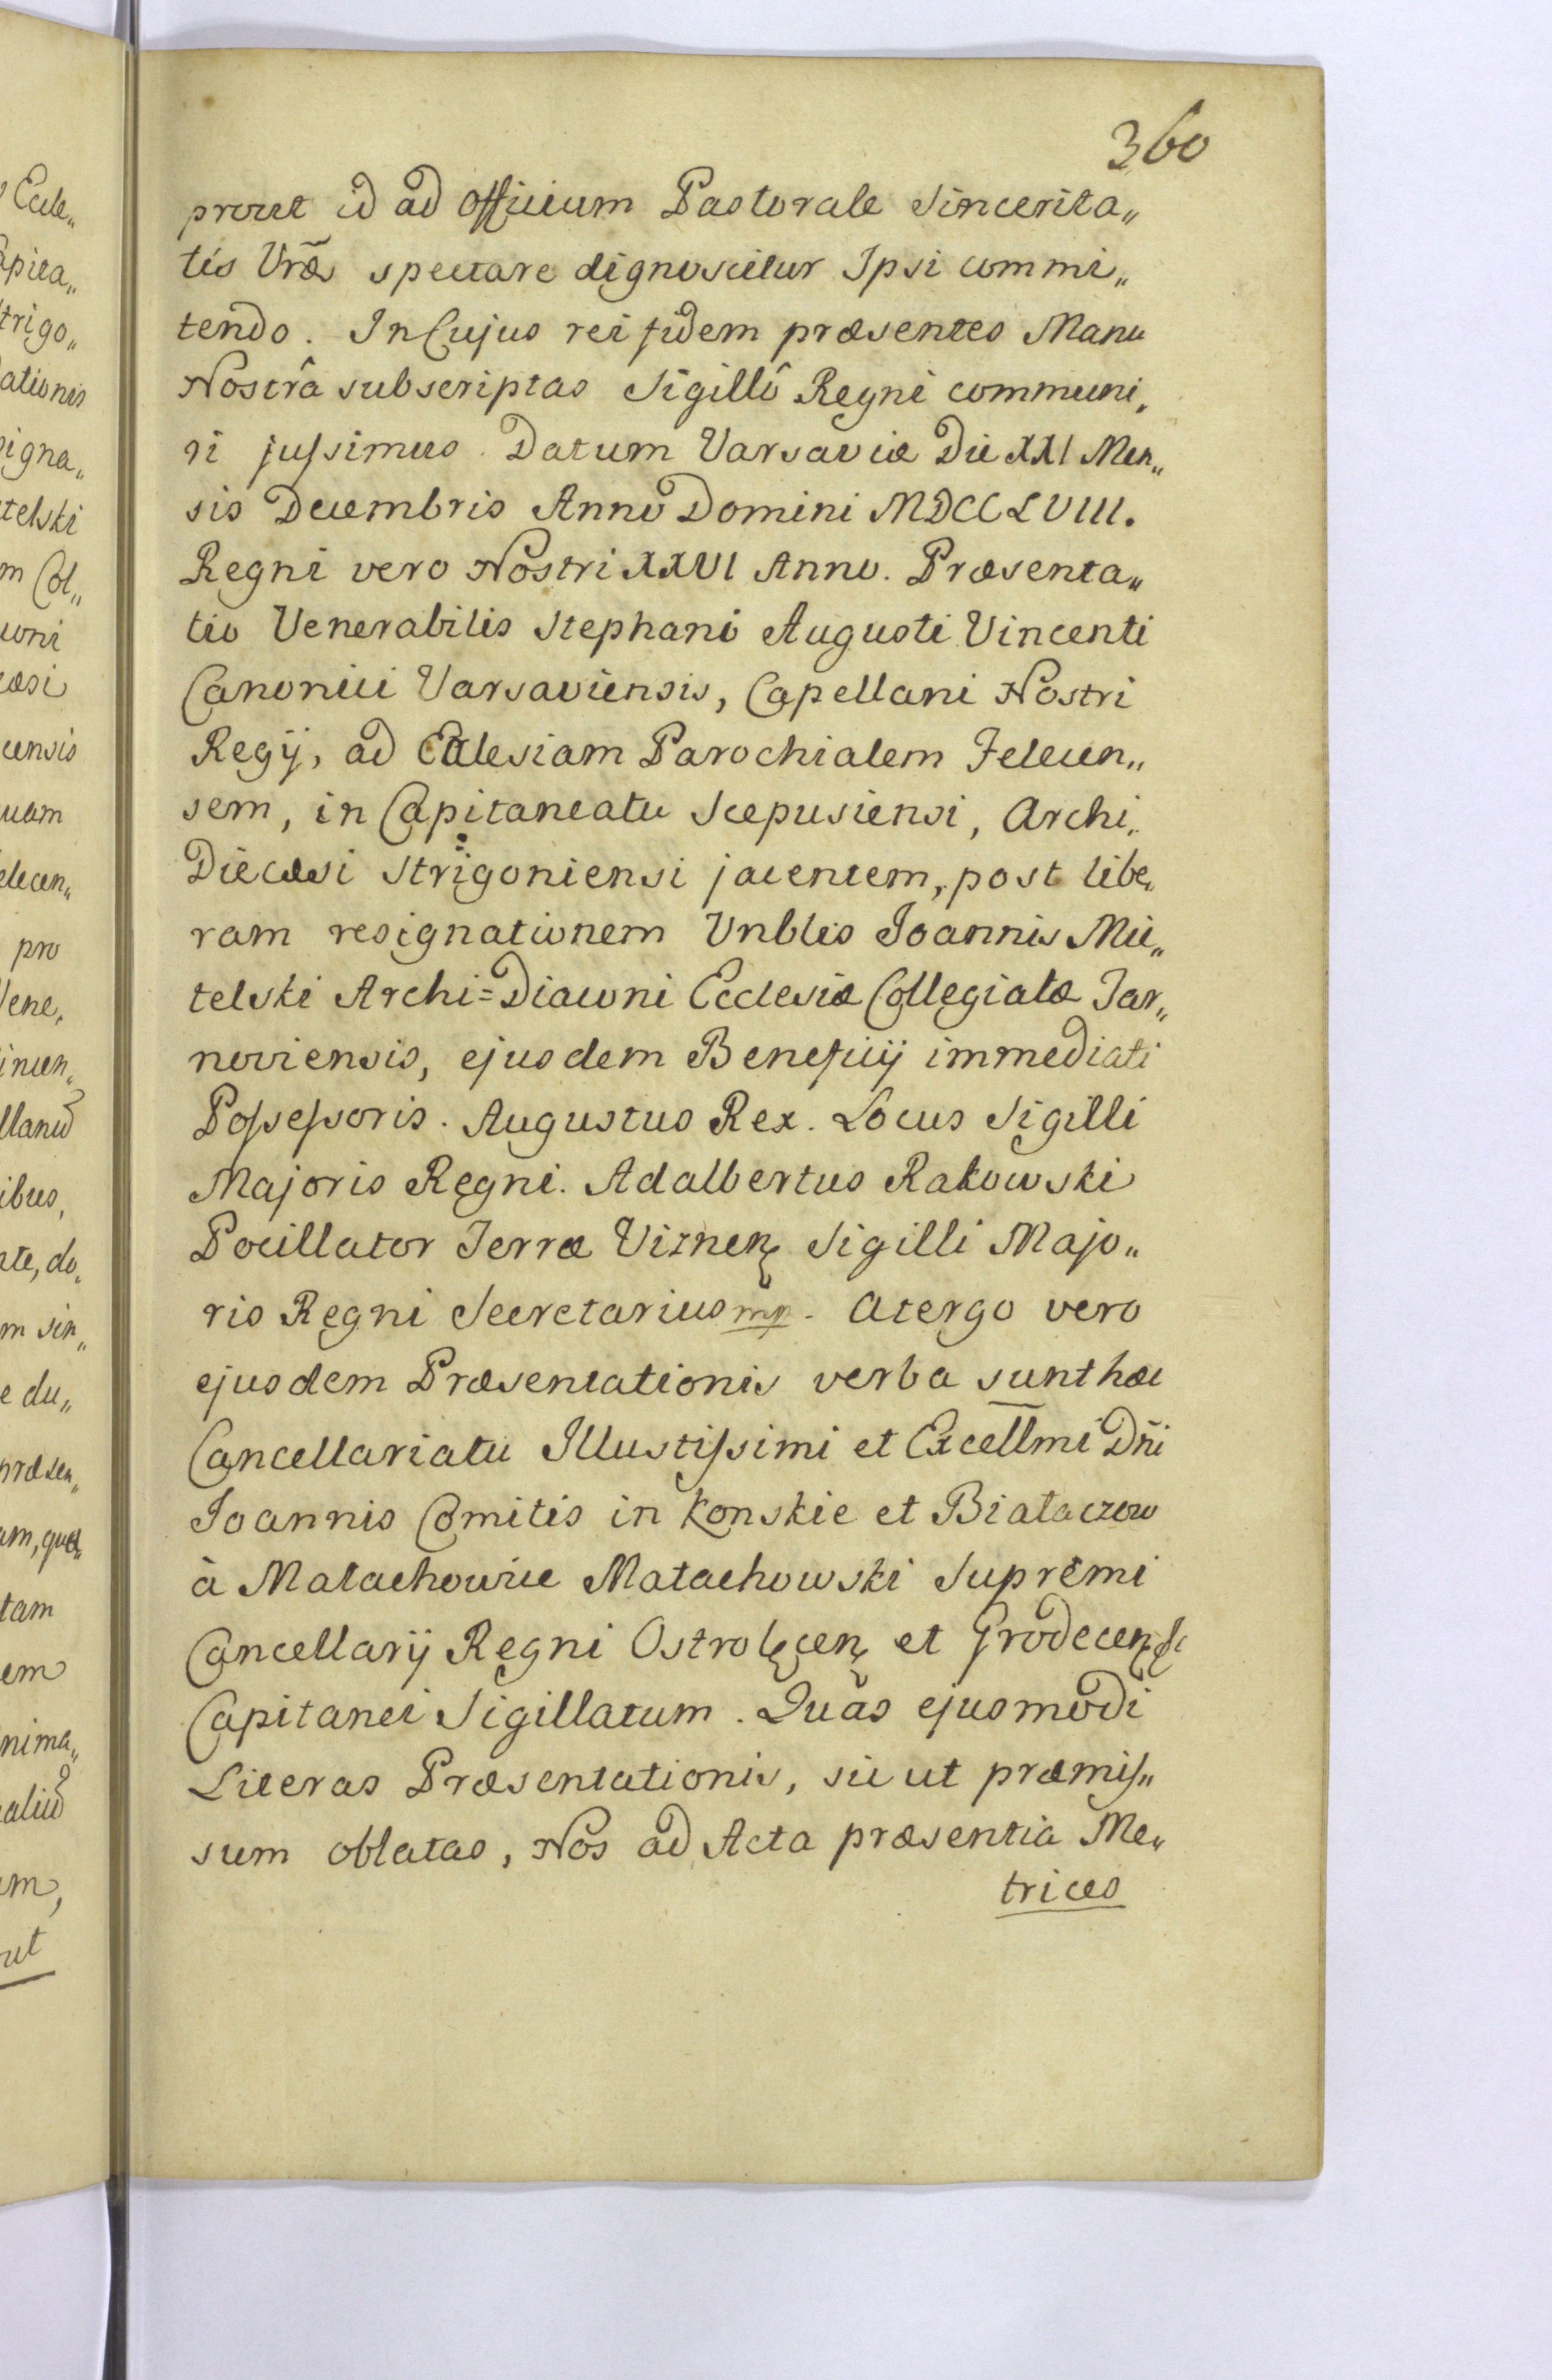 360
prout id ad officium Pastorale Sincerita„
tis Vrãe spectare dignoscitur Ipsi commi„
tendo. In Cujus rei fidem præsentes Manu
Nostrâ subscriptas Sigillô Regni communi„
ri jussimus. Datum Varsaviæ Die XXI Men„
sis Decembris Annô Domini MDCCLVIII.
Regni vero Nostri XXVI Anno. Præsenta„
tio Venerabilis Stephani Augusti Vincenti
Canonici Varsaviensis, Capellani Nostri
Regij, ad Ecclesiam Parochialem Felecen„
sem, in Capitaneatu Scepusiensi, Archi„
Diecæsi Strigoniensi jacentem, post libe„
ram resignationem Vnblis Joannis Mie„
telski Archi=Diaconi Ecclesiæ Collegiatæ Tar„
noviensis, ejusdem Beneficij immediati
Possessoris. Augustus Rex. Locus Sigilli
Majoris Regni. Adalbertus Rakowski
Pocillator Terræ Viznen̨ Sigilli Majo„
ris Regni Secretarius mp. A tergo vero
ejusdem Præsentationis verba sunt hæc
Cancellariatu Illustissimi et Excellm̄i Dñi
Joannis Comitis in Konskie et Białaczow
à Małachowice Małachowski Supremi
Cancellarij Regni Ostrołęcen̨ et Grodecen̨ &c
Capitanei Sigillatum. Quas ejusmodi
Literas Præsentationis, sicut præmis„
sum oblatas, Nos ad Acta præsentia Me„
trices